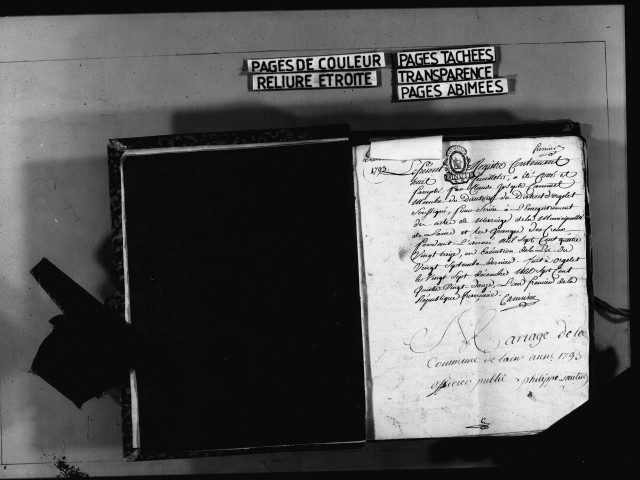 PAGES DE COULEUR
RELIURE ETROITE
PAGES TACHEES
TRANSPARENCE
PAGES ABIMEES
premier
1793.
Le présent Registre Contenant
huit feuillets, a été Coté et
Membre du Directoire du District d'orgelet
Soussigné, pour servir à l'Enregistrement
des actes de Mariage de la Municipalité
de et les granges
pendant L'année Mil Sept Cent quatre
Vingt treize, en Exécution de la Loi du
Vingt Septembre dernier. fait à orgelet
le Vingt Sept décembre Mil Sept Cent
quatre Vingt douze, L'an premier de la
République française.
Mariage de la
Commune de année 1793
officier public philippe